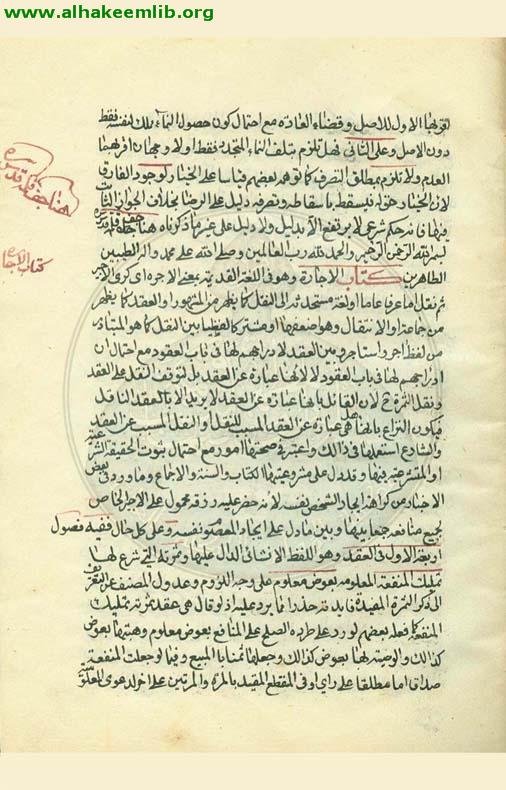 www.alhakeemlib.org
اقربها الاول للاصل وقضاء العادة مع احتمال كون حصول النماء بذلك لنفسه فقط
دون الاصل وعلى الثاني فهل تلزم بتلف النماء المتجدد فقط اولا وجهان اقربهما
العدم ولا تلزم بمطلق التصرف كما توهمه بعضهم قياسا على الخيار لوجود الفارق
لان الخيار حق له فيسقط باسقاطه وتصرفه دليل على الرضا بخلاف الجواز الثابت
فيها فانه حكم شرعي لا يرتفع الا بدليل ولا دليل على غير ما ذكرناه هنا جف قلمه
بسم الله الرحمن الرحيم والحمد لله رب العالمين وصلى الله على محمد واله الطيبين
الطاهرين كتاب الاجارة وهو في اللغة القديمة بمعنى الاجرة اي كرى الاجير
ثم نقل اما عرفا عاما او لغة مستحدثة الى النقل كما يظهر من المشهور او العقد كما يظهر
من جماعة او الانتقال وهو اضعفها او مشترك لفظي بين النقل كما هو المتبادر
من لفظ اجر واستاجر وبين العقد لادراجهم لها في باب العقود مع احتمال ان
ادراجهم لها في باب العقود لا لانها عبارة عن العقد بل لتوقف النقل على العقد
ونقل الثمرة ح لان القائل بانها عبارة عن العقد لا يريد الا العقد الناقل
فيكون النزاع بانها هل هي عبارة عن العقد المسبب للنقل او النقل المسبب عن العقد
والشارع استعملها في ذلك واعتبر في صحتها امور مع احتمال ثبوت الحقيقة الشرعية
او المتشرعية فيها وقد دل على مشروعيتها الكتاب والسنة والاجماع وما ورد في بعض
الاخبار من كراهة ايجار الشخص نفسه لانه حضر عليه رزقه محمول على الاجير الخاص
لجميع منافعه جمعا بينها وبين ما دل على ايجار المعصوم نفسه وعلى كل حال ففيه فصول
اربعة الاول في العقد وهو اللفظ الانشائي الدال عليها وثمرته التي شرع لها
تمليك المنفعة المعلومة بعوض معلوم على وجه اللزوم وعدول المصنف عن التعريف
الى ذكر الثمرة المفيدة فايدته حذرا مما يرد عليه اذ لو قال هي عقد ثمرته تمليك
المنفعة كما فعله بعضهم لورد على طرده الصلح على المنافع بعوض معلوم وهبتها بعوض
كذلك والوصية لها بعوض كذلك وجعلها ثمنا بالمبيع وفيما لو جعلت المنفعة
صداقا اما مطلقا على راي او في المقطع المقيد بالمرة والمرتين على اخر لدعوى
هنا جف قلمه
كتاب الاجارة